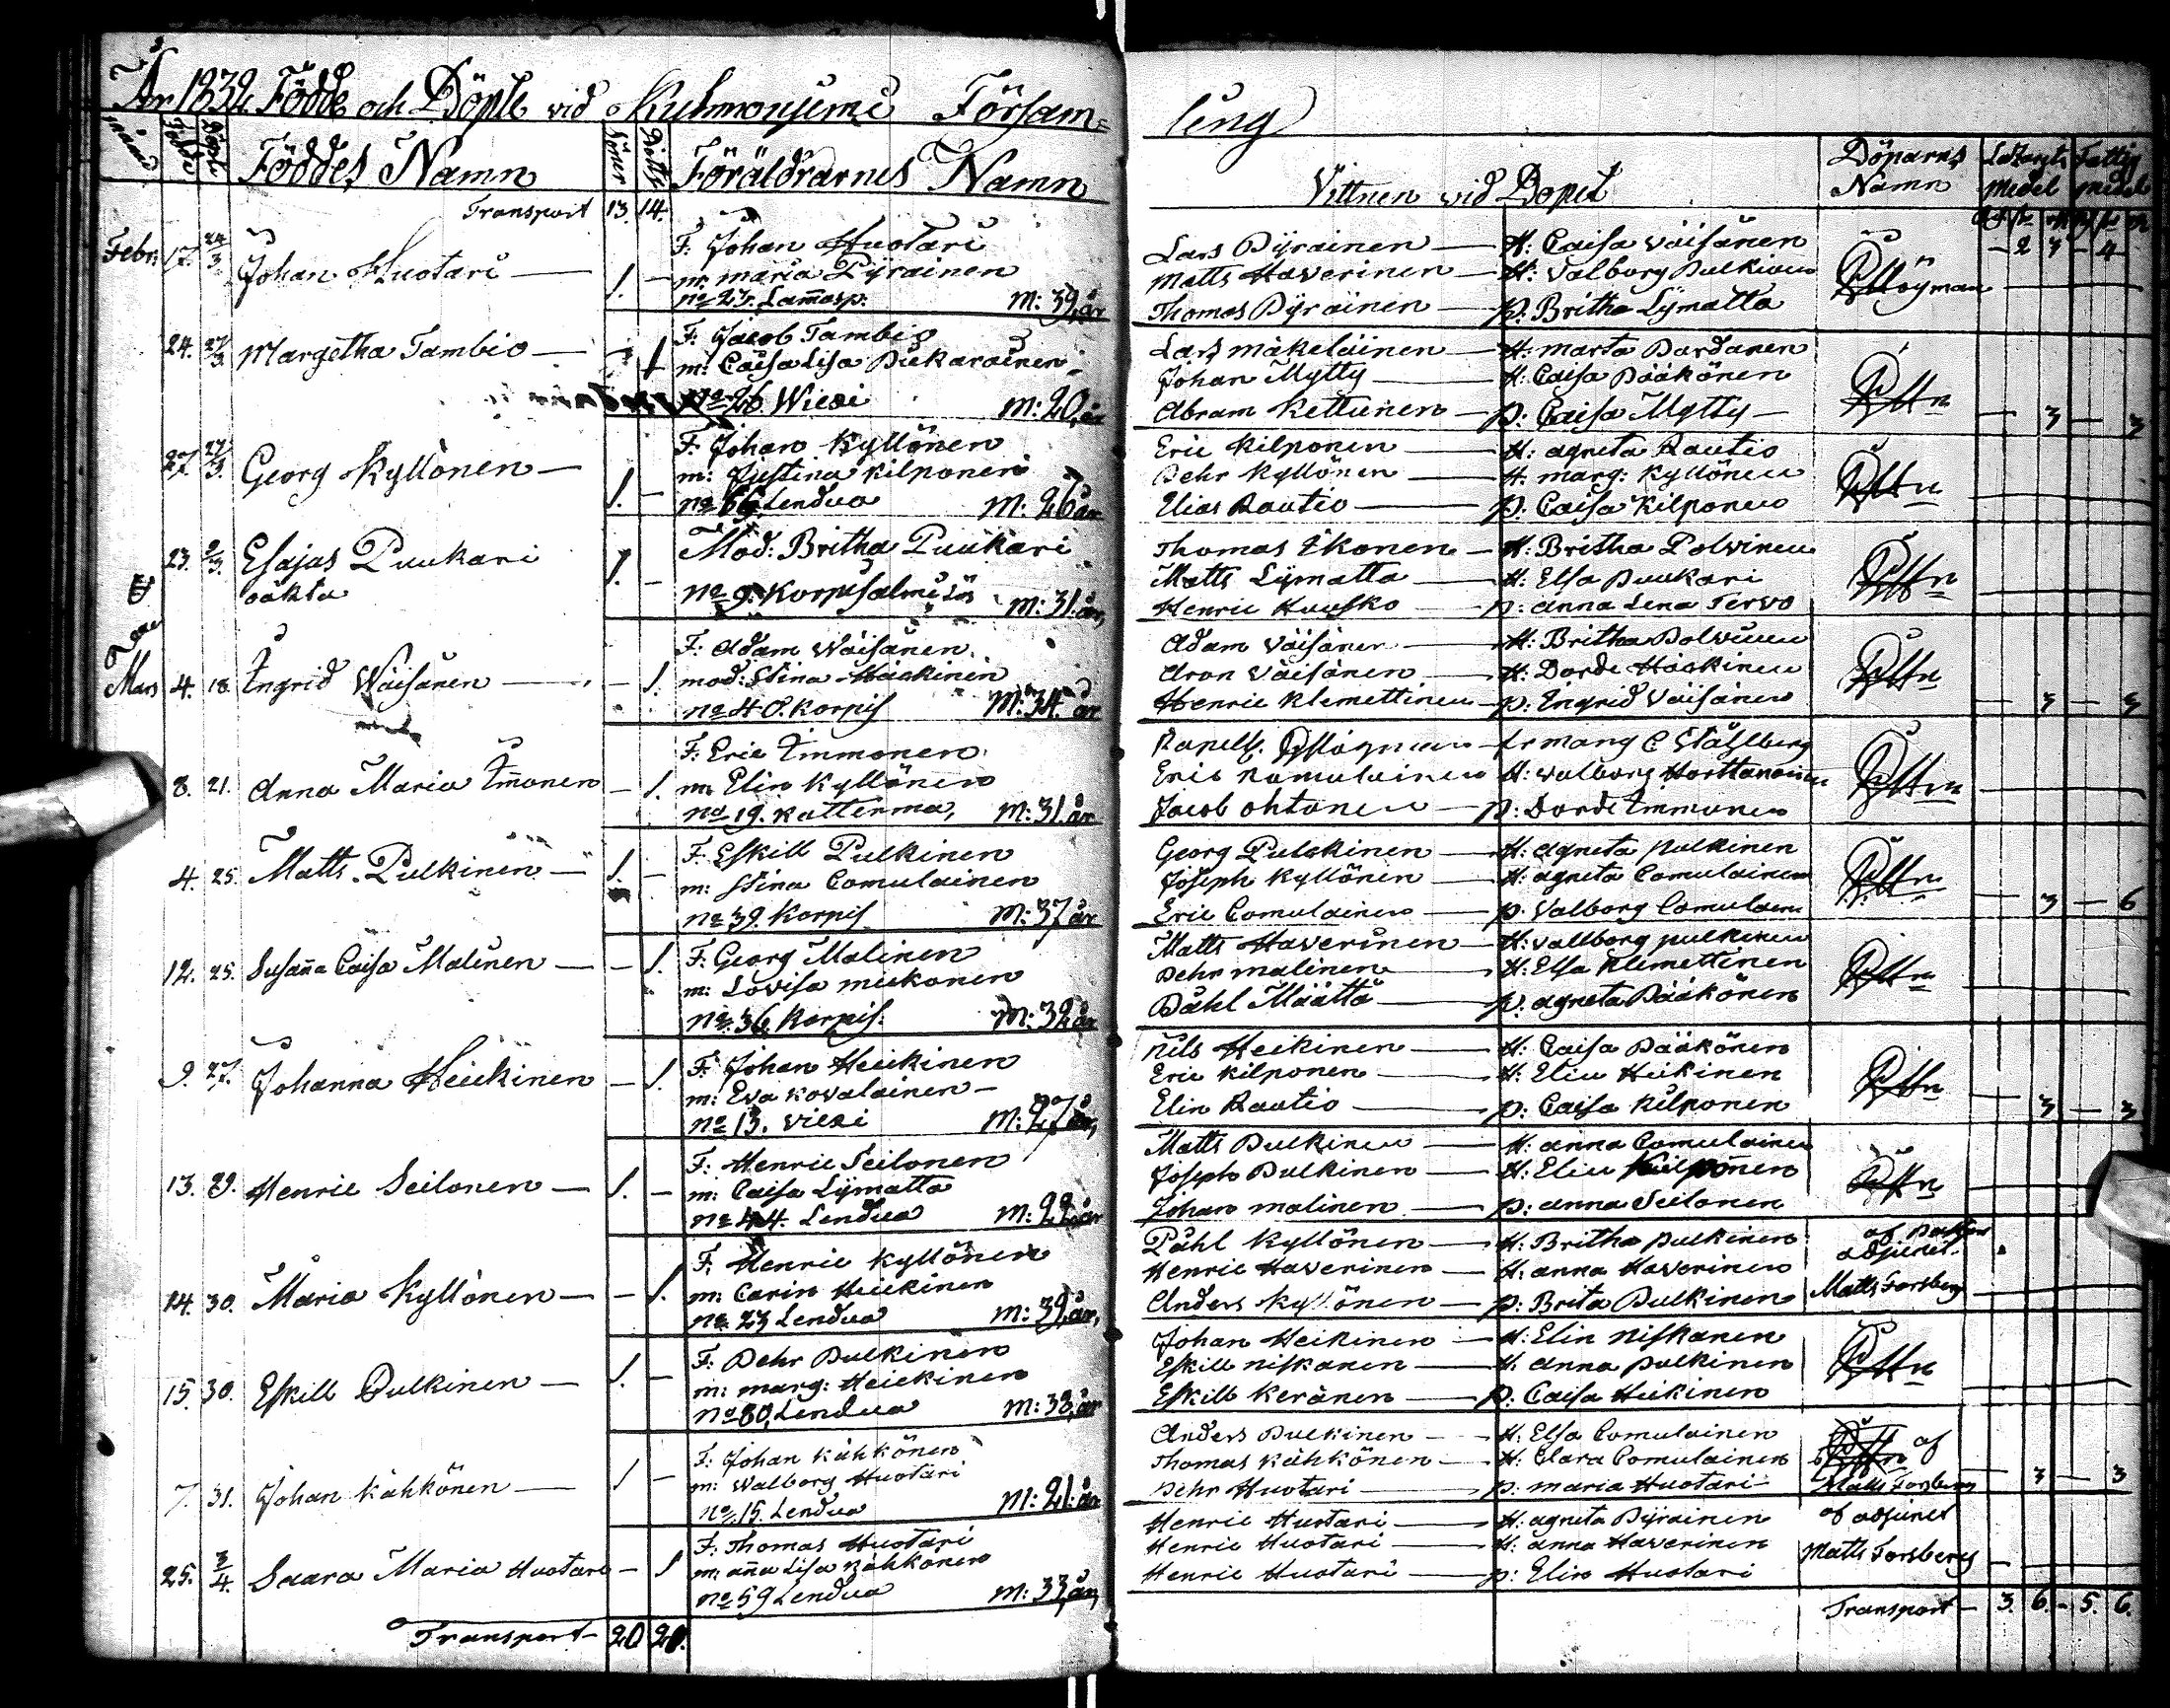 År 1832 Födde och Döpte vid Kuhmoniemi Församling
Månad Födde Döpte Föddes Namn Söner Döttr Föräldrarnes Namn
Vittnen vid Dopet Döparns Namn Lazarets Medel Fattig medel
Transport 13. 14.
Febr. 17. 24/3 Johan Huotari — 1. —
F: Johan Huotari
m: Maria Pyrainen
No 23. Lamasp. M: 39, år
Lars Pyrainen — H: Caisa Väisänen
Matts Haverinen — H: Valborg Pulkinen
Thomas Pyräinen — p: Britha Lymatta
— 2 3 — 4
24. 27/3 Margetha Tambio — 1
F: Jacob Tambio
m: Caisa Lisa Piekarainen
No 26 Wiexi M: 20, år
Lars Mäkeläinen — H: Marta Pardanen
Johan Mytty — H: Caisa Pääkönen
Abram Kettunen — p: Caisa Mytty —
— 3 — 3
27. 27/3. Georg Kyllönen — 1. —
F: Johan Kyllönen
m: Justina Kilponen
No 66, Lendua M: 26 år
Eric Kilponen — H: Agneta Rautio
Pehr Kyllönen — H: Marg: Kyllönen
Elias Rautio — p: Caisa Kilponen
23. 2/3. Esajas Puukari 1. —
oäkta
Mod: Britha Puukari
No 9. Korpisalmi M: 31. år,
Thomas Ikonen — H: Britha Polvinen
Matts Lymatta — H: Elsa Puukari
Henric Huusko — p: Anna Lena Tervo
Mars 4. 18. Ingrid Wäisänen — — 1.
F: Adam Wäisänen
mod: Stina Häckinen
No 40. Korpis M: 34. år
Adam Väisänen — H: Britha Polvinen
Aron Väisänen — H: Dorde Häckinen
Henric Klemettinen — p: Ingrid Väisänen
— 3 — 3
8. 21. Anna Maria Imonen — 1.
F: Eric Immonen
m: Elin Kyllönen
No 19. Katterma, M: 31. år
Eric Komulainen H: Walborg Horttanainen
Jacob Ohtonen — p: Dorde Immonen
4. 25. Matts Pulkinen — 1. —
F: Eskill Pulkinen
m: Stina Comulainen
No 39. Korpis M: 37 år
Georg Pulckinen — H: Agneta Pulkinen
Joseph Kyllönen — H: Agneta Comulainen
Eric Comulainen — p: Valborg Comulain
— 3 — 6
12. 25. Susaña Caisa Malinen — — 1.
F: Georg Malinen
m: Lovisa Mickonen
No 36. Korpis. M: 32 år
Matts Haverinen — H: Vallborg Pulkinen
Pehr Malinen — H: Elsa Klemettinen
Påhl Määttä — p: Agneta Pääkönen
9. 27. Johanna Heickinen — 1.
F: Johan Heickinen
m: Eva Kovalainen —
No 13. Viexi M: 27 år,
Nils Heikinen — H: Caisa Pääkönen
Eric Kilponen — H: Elin Heikinen
Elin Rautio — p: Caisa Kilponen
— 3 — 3
13. 29. Henric Seilonen — 1. —
F: Henric Seilonen
m: Caisa Lymatta
No 44. Lendua M: 22 år
Matts Pulkinen — H: Anna Comulainen
Joseph Pulkinen — H: Elin Kilponen
Johan Malinen — p: Anna Seilonen
14. 30. Maria Kyllönen — — 1.
F: Henric Kyllönen
m: Carin Heickinen
No 23 Lendua M: 39, år,
Påhl Kyllönen — H: Britha Pulkinen
Henric Haverinen — H: Anna Haverinen
Anders Kyllönen — p: Brita Pulkinen
adjunct.
Matts Forsberg
15. 30. Eskill Pulkinen — 1. —
F: Pehr Pulkinen
m: Marg: Heickinen
No 80, Lendua M: 38, år
Johan Heikinen — H: Elin Niskanen
Eskill Niskanen — H: Anna Pulkinen
Eskill Keränen — p: Caisa Heikinen
7. 31. Johan Kähkönen — 1 —
F: Johan Kähkönen
m: Walborg Huotari
No 15. Lendua M: 21. år
Anders Pulkinen — H: Elsa Comulainen
Thomas Kähkönen — H: Clara Comulainen
Pehr Huotari — p: Maria Huotari
af
Matts Forsberg
— 3 — 3
25. 3/4. Saara Maria Huotari — 1
F: Thomas Huotari
m: Aña Lisa Kähkönen
No 59 Lendua M: 33, år,
Henric Huotari — H: Agneta Pyrainen
Henric Huotari — H: Anna Haverinen
Henric Huotari — p: Elin Huotari
af adjunct
Matts Forsberg
Transport — 20 20.
Transport — 3. 6. — 5. 6.